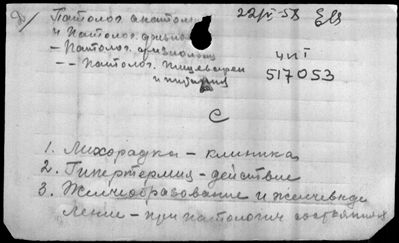 Патолог анатом 22/IV-58
Ч Патолог. физиол
- Патолог. физиолог
-- Патолог. пищеварен ЧИТ
и питания 517053
С
1. Лихорадка - клиника
2. Гипертермия - действие
3. Желчеобразование и желчевыде
ление - при патологич состояниях